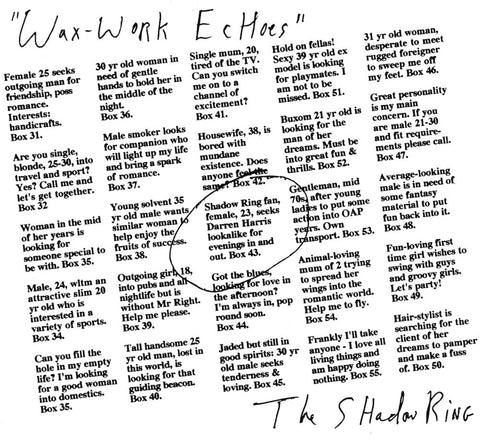 "Wax-Work Echoes"
Female 25 seeks
outgoing man for
friendship, poss
romance.
Interests:
handicrafts.
Box 31.
Are you single,
blonde, 25-30, into
travel and sport?
Yes? Call me and
let's get together.
Box 32
Woman in the mid
of her years is
looking for
someone special to
be with. Box 35.
Male, 24, wltm an
attractive slim 20
yr old who is
interested in a
variety of sports.
Box 34.
Can you fill the
hole in my empty
life? I'm looking
for a good woman
into domestics.
Box 35.
30 yr old woman in
need of gentle
hands to hold her in
the middle of the
night.
Box 36.
Male smoker looks
for companion who
will light up my life
and bring a spark
of romance.
Box 37.
Young solvent 35
yr old male wants
similar woman to
help enjoy the
fruits of success.
Box 38.
Outgoing girl, 18,
into pubs and all
nightlife but is
without Mr Right.
Help me please.
Box 39.
Tall handsome 25
yr old man, lost in
this world, is
looking for that
guiding beacon.
Box 40.
Single mum, 20,
tired of the TV.
Can you switch
me on to a
channel of
excitement?
Box 41.
Housewife, 38, is
bored with
mundane
existence. Does
anyone feel the
same? Box 42.
Shadow Ring fan,
female, 23, seeks
Darren Harris
lookalike for
evenings in and
out. Box 43.
Got the blues,
looking for love in
the afternoon?
I'm always in, pop
round soon.
Box 44.
Jaded but still in
good spirits: 30 yr
old male seeks
tenderness &
loving. Box 45.
Hold on fellas!
Sexy 39 yr old ex
model is looking
for playmates. I
am not to be
missed. Box 51.
Buxom 21 yr old is
looking for the
man of her
dreams. Must be
into great fun &
thrills. Box 52.
Gentleman, mid
70s, after young
ladies to put some
action into OAP
years. Own
transport. Box 53.
Animal-loving
mum of 2 trying
to spread her
wings into the
romantic world.
Help me to fly.
Box 54.
Frankly I'll take
anyone - I love all
living things and
am happy doing
nothing. Box 55.
31 yr old woman,
desperate to meet
rugged foreigner
to sweep me off
my feet. Box 46.
Great personality
is my main
concern. If you
are male 21-30
and fit require-
ments please call.
Box 47.
Average-looking
male is in need of
some fantasy
material to put
fun back into it.
Box 48.
Fun-loving first
time girl wishes to
swing with guys
and groovy girls.
Let's party!
Box 49.
Hair-stylist is
searching for the
client of her
dreams to pamper
and make a fuss
of. Box 50.
The SHadow RING